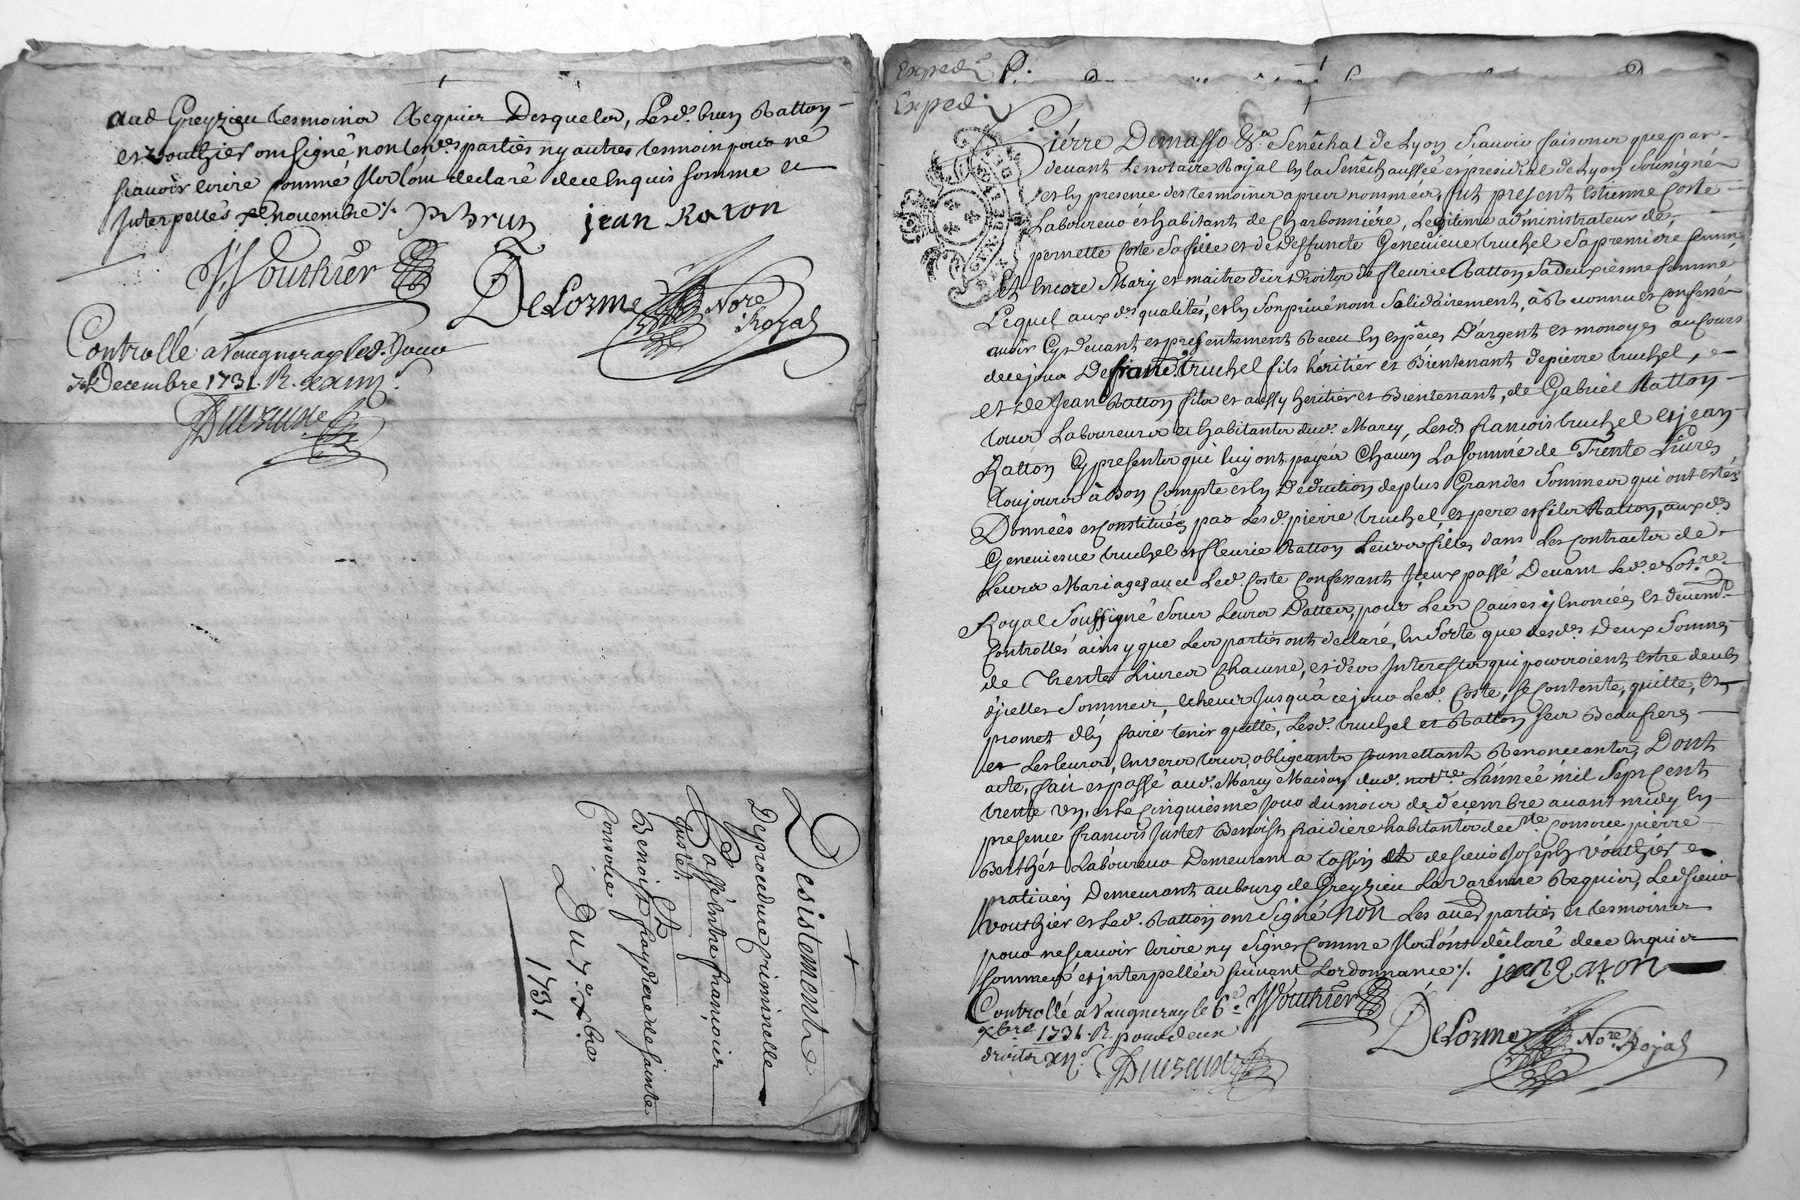 aud Greyzieu tesmoins Requier Desquelx, Lesd. brun Ratton
et vouthier ont signé non les dts parties ny autres tesmoins pour ne
scauoir ecrire comme Ils lont declaré de ce Enquis somme et
Interpellés novembre /. brun jean Raton
Vouthier
DeLorme Nore Royal
Controllé a Vaugneray led. Jour
Decembre 1731. R.
Desistement
De procedure criminelle
Passé entre francois
justet
Benoist fraydiere de sainte
Consorce
Du 7e xbre
1731
Exped
Exped
Pierre Demasso &a Senêchal de Lyon Scauoir faisons que par
deuant Le notaire Royal En la Senêchaussée et présidial de Lyon Soussigné
et En presence des tesmoins apres nommés, fut present Estienne Coste
Laboureur et habitant de Charbonniere, Legitime administrateur de
pernette Coste sa fille et de deffuncte Geneuieue bruchel sa premiere femme
Et Encore Mary et maitre des droits de fleurie Ratton sa deuxiesme femme
Lequel aux ds. qualités, et En son priué nom Solidairement, à Reconnu et Confessé
auoir Cy deuant et presentement Receu En espêces D'argent et monoyes au Cours
de ce jour De franc bruchel fils héritier et Bientenant de pierre bruchel,
et de Jean Ratton fils et aussy heritier et Bientenant, de Gabriel Ratton
tous Laboureurs et habitants dud. Marcy, Lesds. francois bruchel et jean
Ratton Cy presents qui luy ont payés Chacun La somme de Trente Liures
Toujours à Bon Compte et En Déduction de plus Grandes Sommes qui ont estés
Données et Constituées par Lesd. pierre bruchel, et pere et fils Ratton, aux ds
Geneuieue bruchel et fleurie Ratton Leurs filles dans Les Contracts de
Leurs Mariages auec Led. Coste Confessant Iceux passé Deuant Led. Notre
Royal Soussigné Sous Leurs Dattes, pour Les Causes y Enoncées et deuemt
Controllés ainsy que Les parties ont declaré, En sorte que desdes Deux Sommes
de trente Liures Chacune, et des Interests qui pourroient estre deubs
d'jcelles Sommes, Echeus Jusqu'à ce jour Led. Coste, se Contente, quitte, Et
promet d'En faire tenir quitte, Lesd. bruchel et Ratton ses Beaufreres
et Les leurs, Enuers tous, obligeants soumettant Renonceants, Dont
acte, fait et passé aud. Marcy Maison dud. notre. Lannée mil Sept Cent
trente un, et Le Cinquiesme Jour du mois de decembre auant midy En
presence francois Justet Benoist fraidiere habitants de Ste Consorce, pierre
Berthet Laboureur Demeurant a tassin et de sieur Joseph Vouthier
praticien Demeurant au bourg de Greyzieu La Varenne Requier, Led sieur
vouthier et Led. Ratton ont Signé non Les aues parties et tesmoins
pour ne scauoir ecrire ny signer comme Ils lont déclaré de ce Enquis
sommés et jnterpellés suiuant Lordonnance /. jean Raton
Controllé a Vaugneray le 6e Vouthier
xbre 1731. R. pour deux
droits
DeLorme Nore Royal